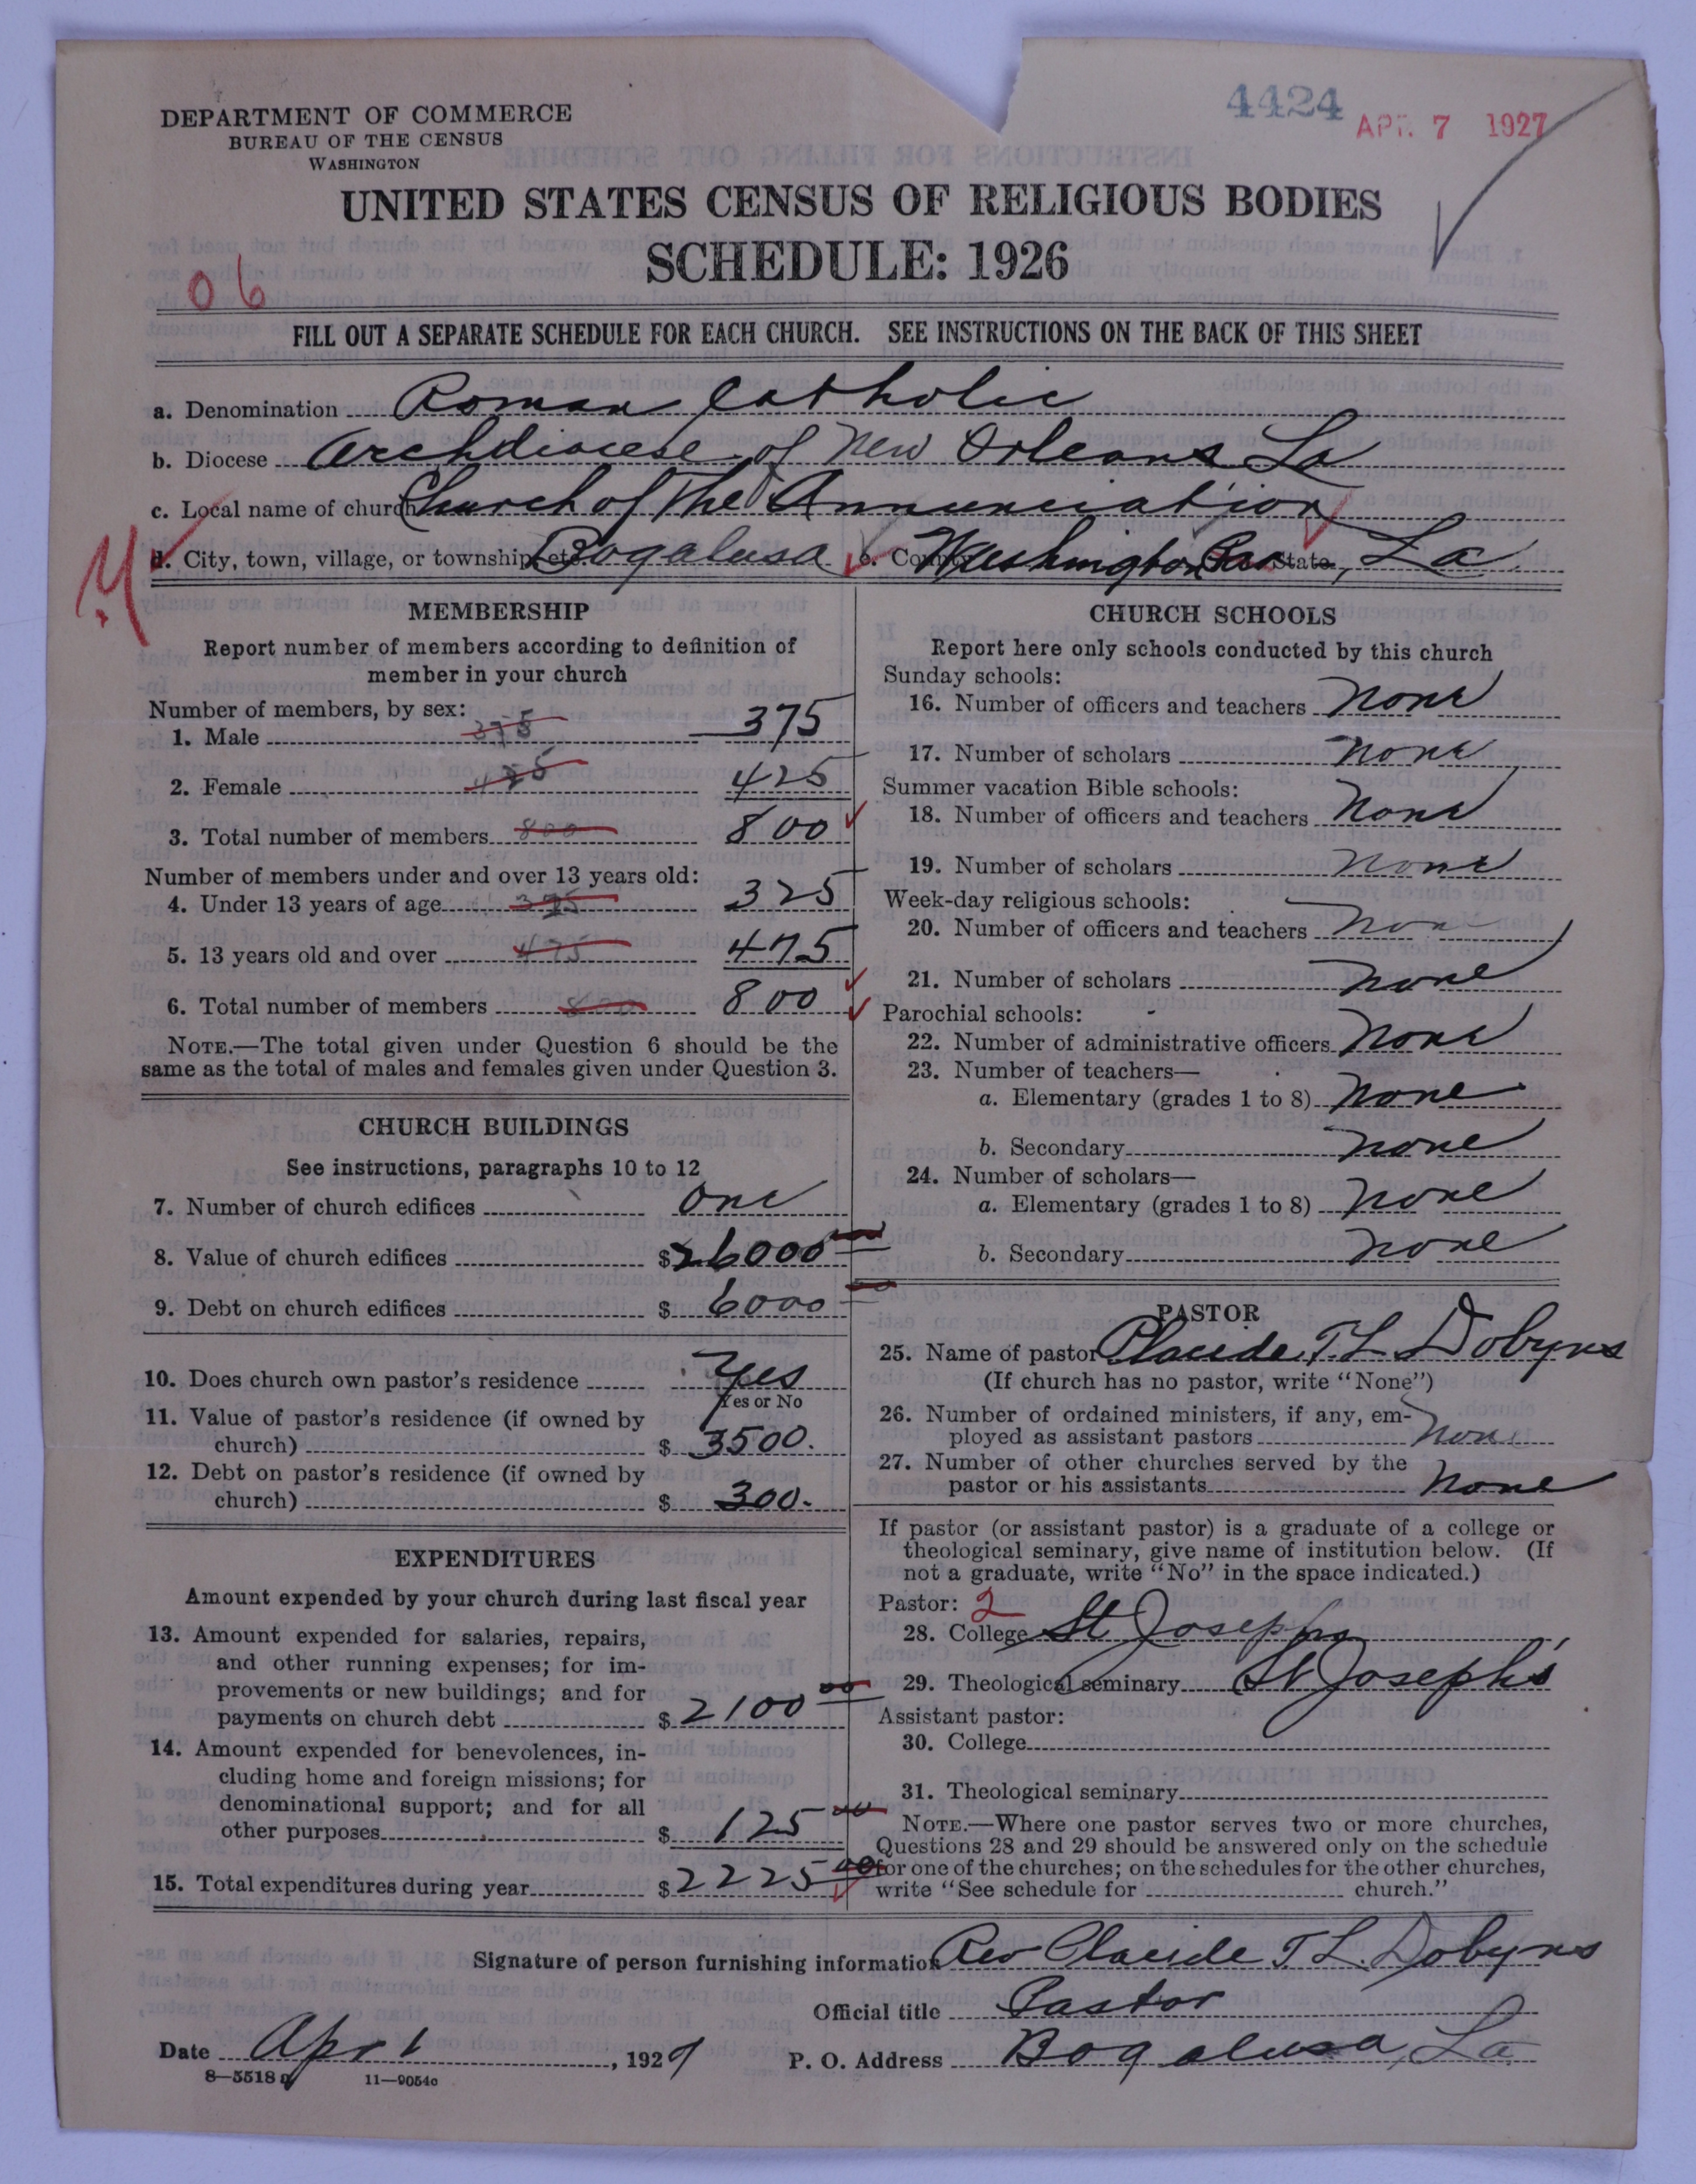 4424
APR. 7 1927
DEPARTMENT OF COMMERCE
BUREAU OF THE CENSUS
WASHINGTON
UNITED STATES CENSUS OF RELIGIOUS BODIES
SCHEDULE: 1926
06
FILL OUT A SEPARATE SCHEDULE FOR EACH CHURCH. SEE INSTRUCTIONS ON THE BACK OF THIS SHEET
a. Denomination Roman Catholic
b. Diocese Archdiocese of New Orleans La
c. Local name of church Church of the Annunciation
d. City, town, village, or township, etc. Bogalusa e. County Washington Par State, La
MEMBERSHIP
Report number of members according to definition of
member in your church
Number of members, by sex:
1. Male 375 375
2. Female 425 425
3. Total number of members 800 800
Number of members under and over 13 years old:
4. Under 13 years of age 325 325
5. 13 years old and over 475 475
6. Total number of members 800 800
NOTE.—The total given under Question 6 should be the
same as the total of males and females given under Question 3.
CHURCH BUILDINGS
See instructions, paragraphs 10 to 12
7. Number of church edifices One
8. Value of church edifices $26000
9. Debt on church edifices $ 6000
10. Does church own pastor's residence Yes
Yes or No
11. Value of pastor's residence (if owned by
church) $ 3500.
12. Debt on pastor's residence (if owned by
church) $ 300.
EXPENDITURES
Amount expended by your church during last fiscal year
13. Amount expended for salaries, repairs,
and other running expenses; for im-
provements or new buildings; and for
payments on church debt $ 2100 00
14. Amount expended for benevolences, in-
cluding home and foreign missions; for
denominational support; and for all
other purposes $ 125 00
15. Total expenditures during year $ 2225 00
CHURCH SCHOOLS
Report here only schools conducted by this church
Sunday schools:
16. Number of officers and teachers None
17. Number of scholars None
Summer vacation Bible schools:
18. Number of officers and teachers None
19. Number of scholars None
Week-day religious schools:
20. Number of officers and teachers None
21. Number of scholars None
Parochial schools:
22. Number of administrative officers None
23. Number of teachers—
a. Elementary (grades 1 to 8) None
b. Secondary None
24. Number of scholars—
a. Elementary (grades 1 to 8) None
b. Secondary None
PASTOR
25. Name of pastor Claude T. L. Dobyns
(If church has no pastor, write "None")
26. Number of ordained ministers, if any, em-
ployed as assistant pastors None
27. Number of other churches served by the
pastor or his assistants None
If pastor (or assistant pastor) is a graduate of a college or
theological seminary, give name of institution below. (If
not a graduate, write "No" in the space indicated.)
Pastor: 2
28. College St Josephs
29. Theological seminary St Joseph's
Assistant pastor:
30. College
31. Theological seminary
NOTE.—Where one pastor serves two or more churches,
Questions 28 and 29 should be answered only on the schedule
for one of the churches; on the schedules for the other churches,
write "See schedule for church."
Signature of person furnishing information Rev Claude T. L. Dobyns
Official title Pastor
Date Apr 1, 1927 P. O. Address Bogalusa, La
8—5518 a 11—9054c